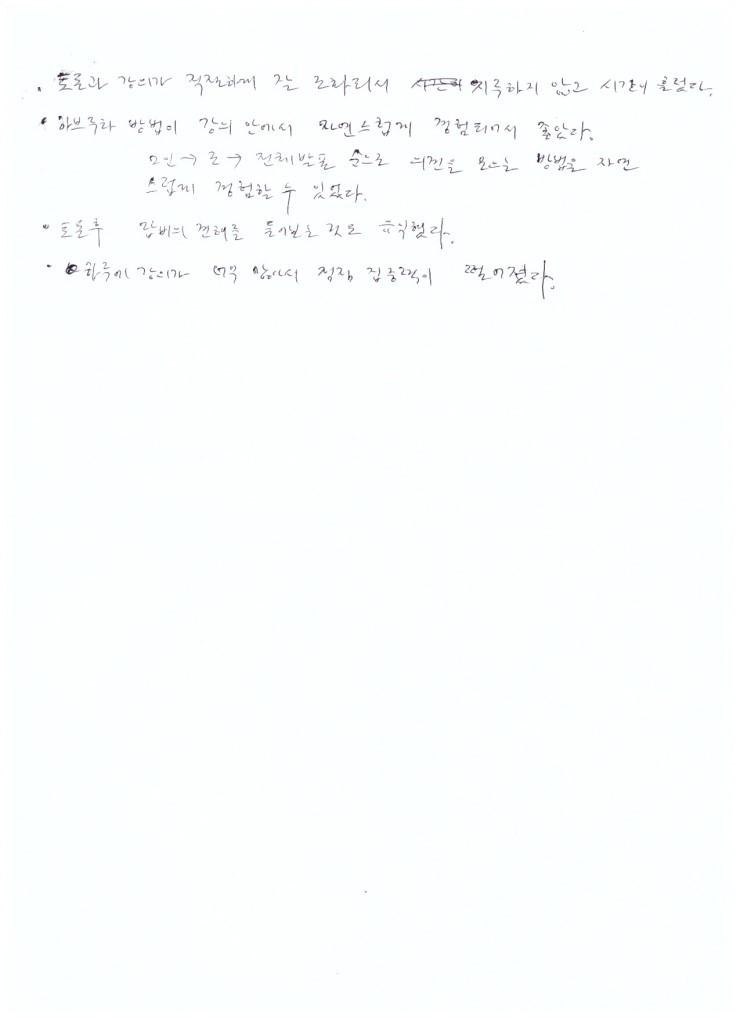 · 토론과 강의가 적절하게 잘 조화되서 지루하지 않고 시간이 흘렀다.
· 하브루타 방법이 강의 안에서 자연스럽게 경험되어서 좋았다.
2인 → 조 → 전체발표 순으로 의견을 모으는 방법을 자연
스럽게 경험할 수 있었다.
· 토론후 랍비의 견해를 들어보는 것도 유익했다.
· 하루에 강의가 너무 많아서 점점 집중력이 떨어졌다.